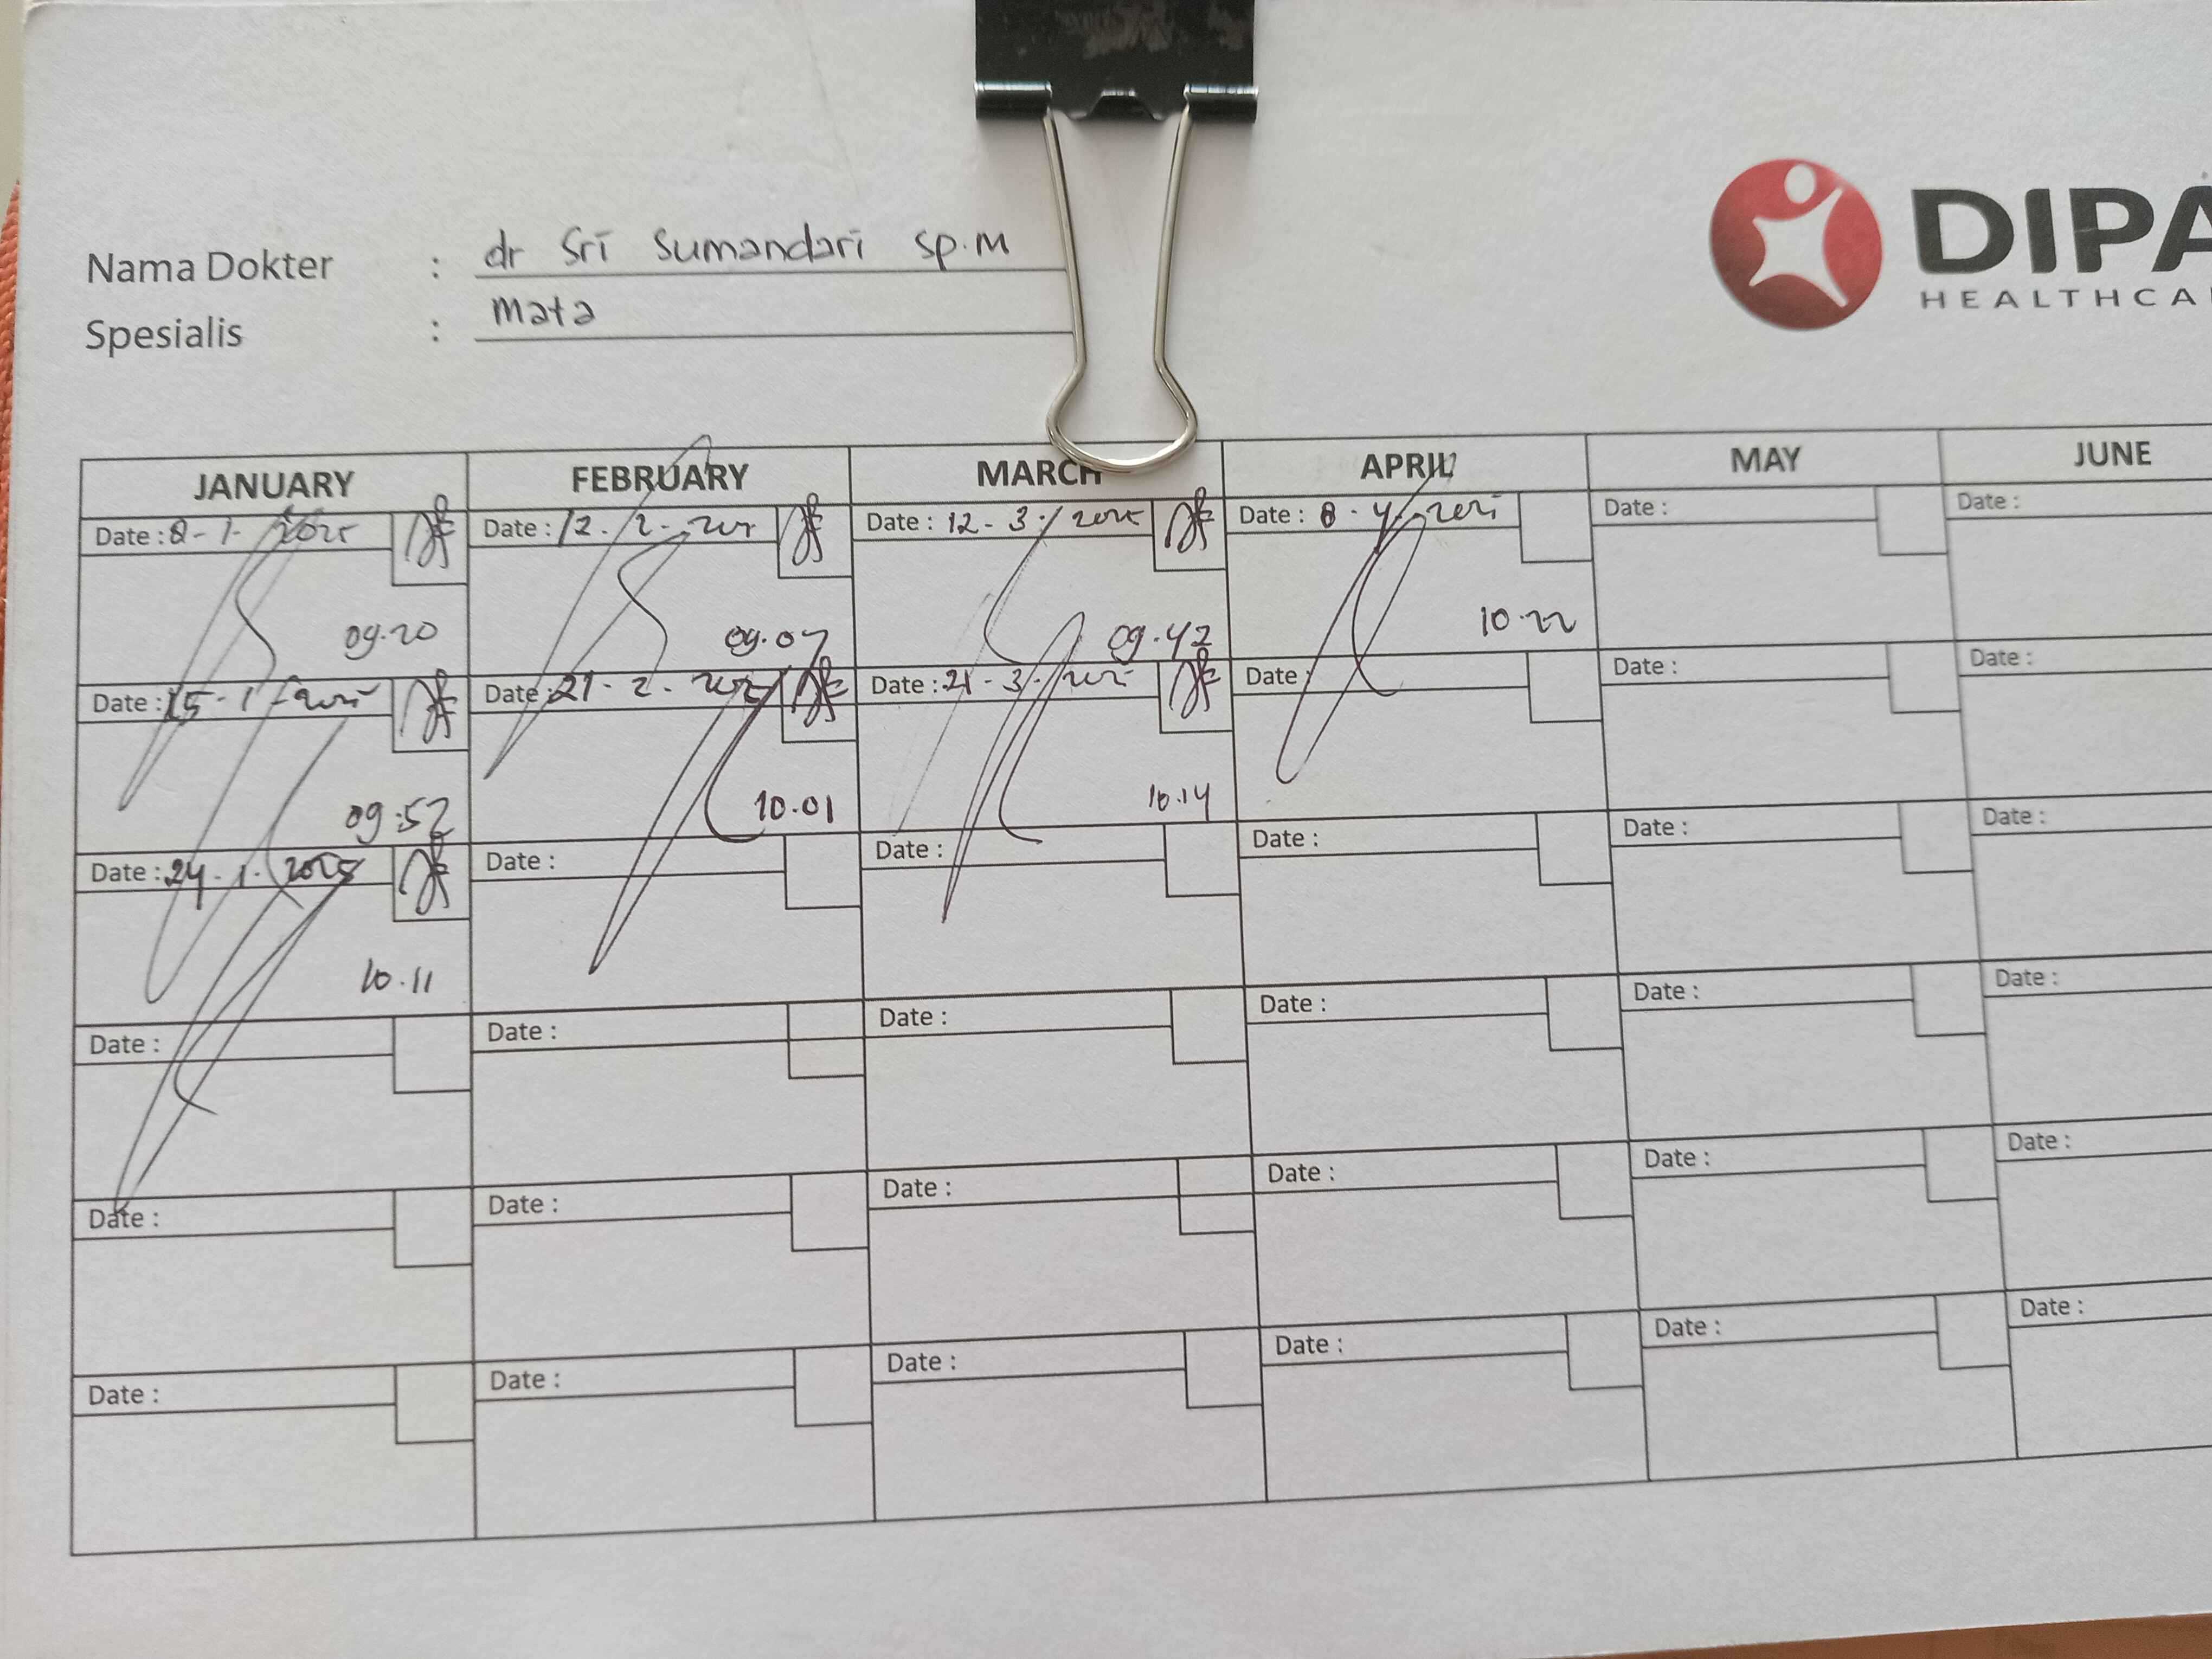 Nama Dokter : dr Sri Sumandari sp.M
Spesialis : Mata
DIPA
HEALTHCA
JANUARY FEBRUARY MARCH APRIL MAY JUNE
Date : 8 - 1 - 2025 Date : 12 - 2 - 2025 Date : 12 - 3 - 2025 Date : 8 - 4 - 2025 Date : Date :
09.20 09.07 09.42 10.22
Date : 15 - 1 - 2025 Date : 21 - 2 - 2025 Date : 21 - 3 - 2025 Date : Date : Date :
09:52 10.01 10.14
Date : 24 - 1 - 2025 Date : Date : Date : Date : Date :
10.11
Date : Date : Date : Date : Date : Date :
Date : Date : Date : Date : Date : Date :
Date : Date : Date : Date : Date : Date :